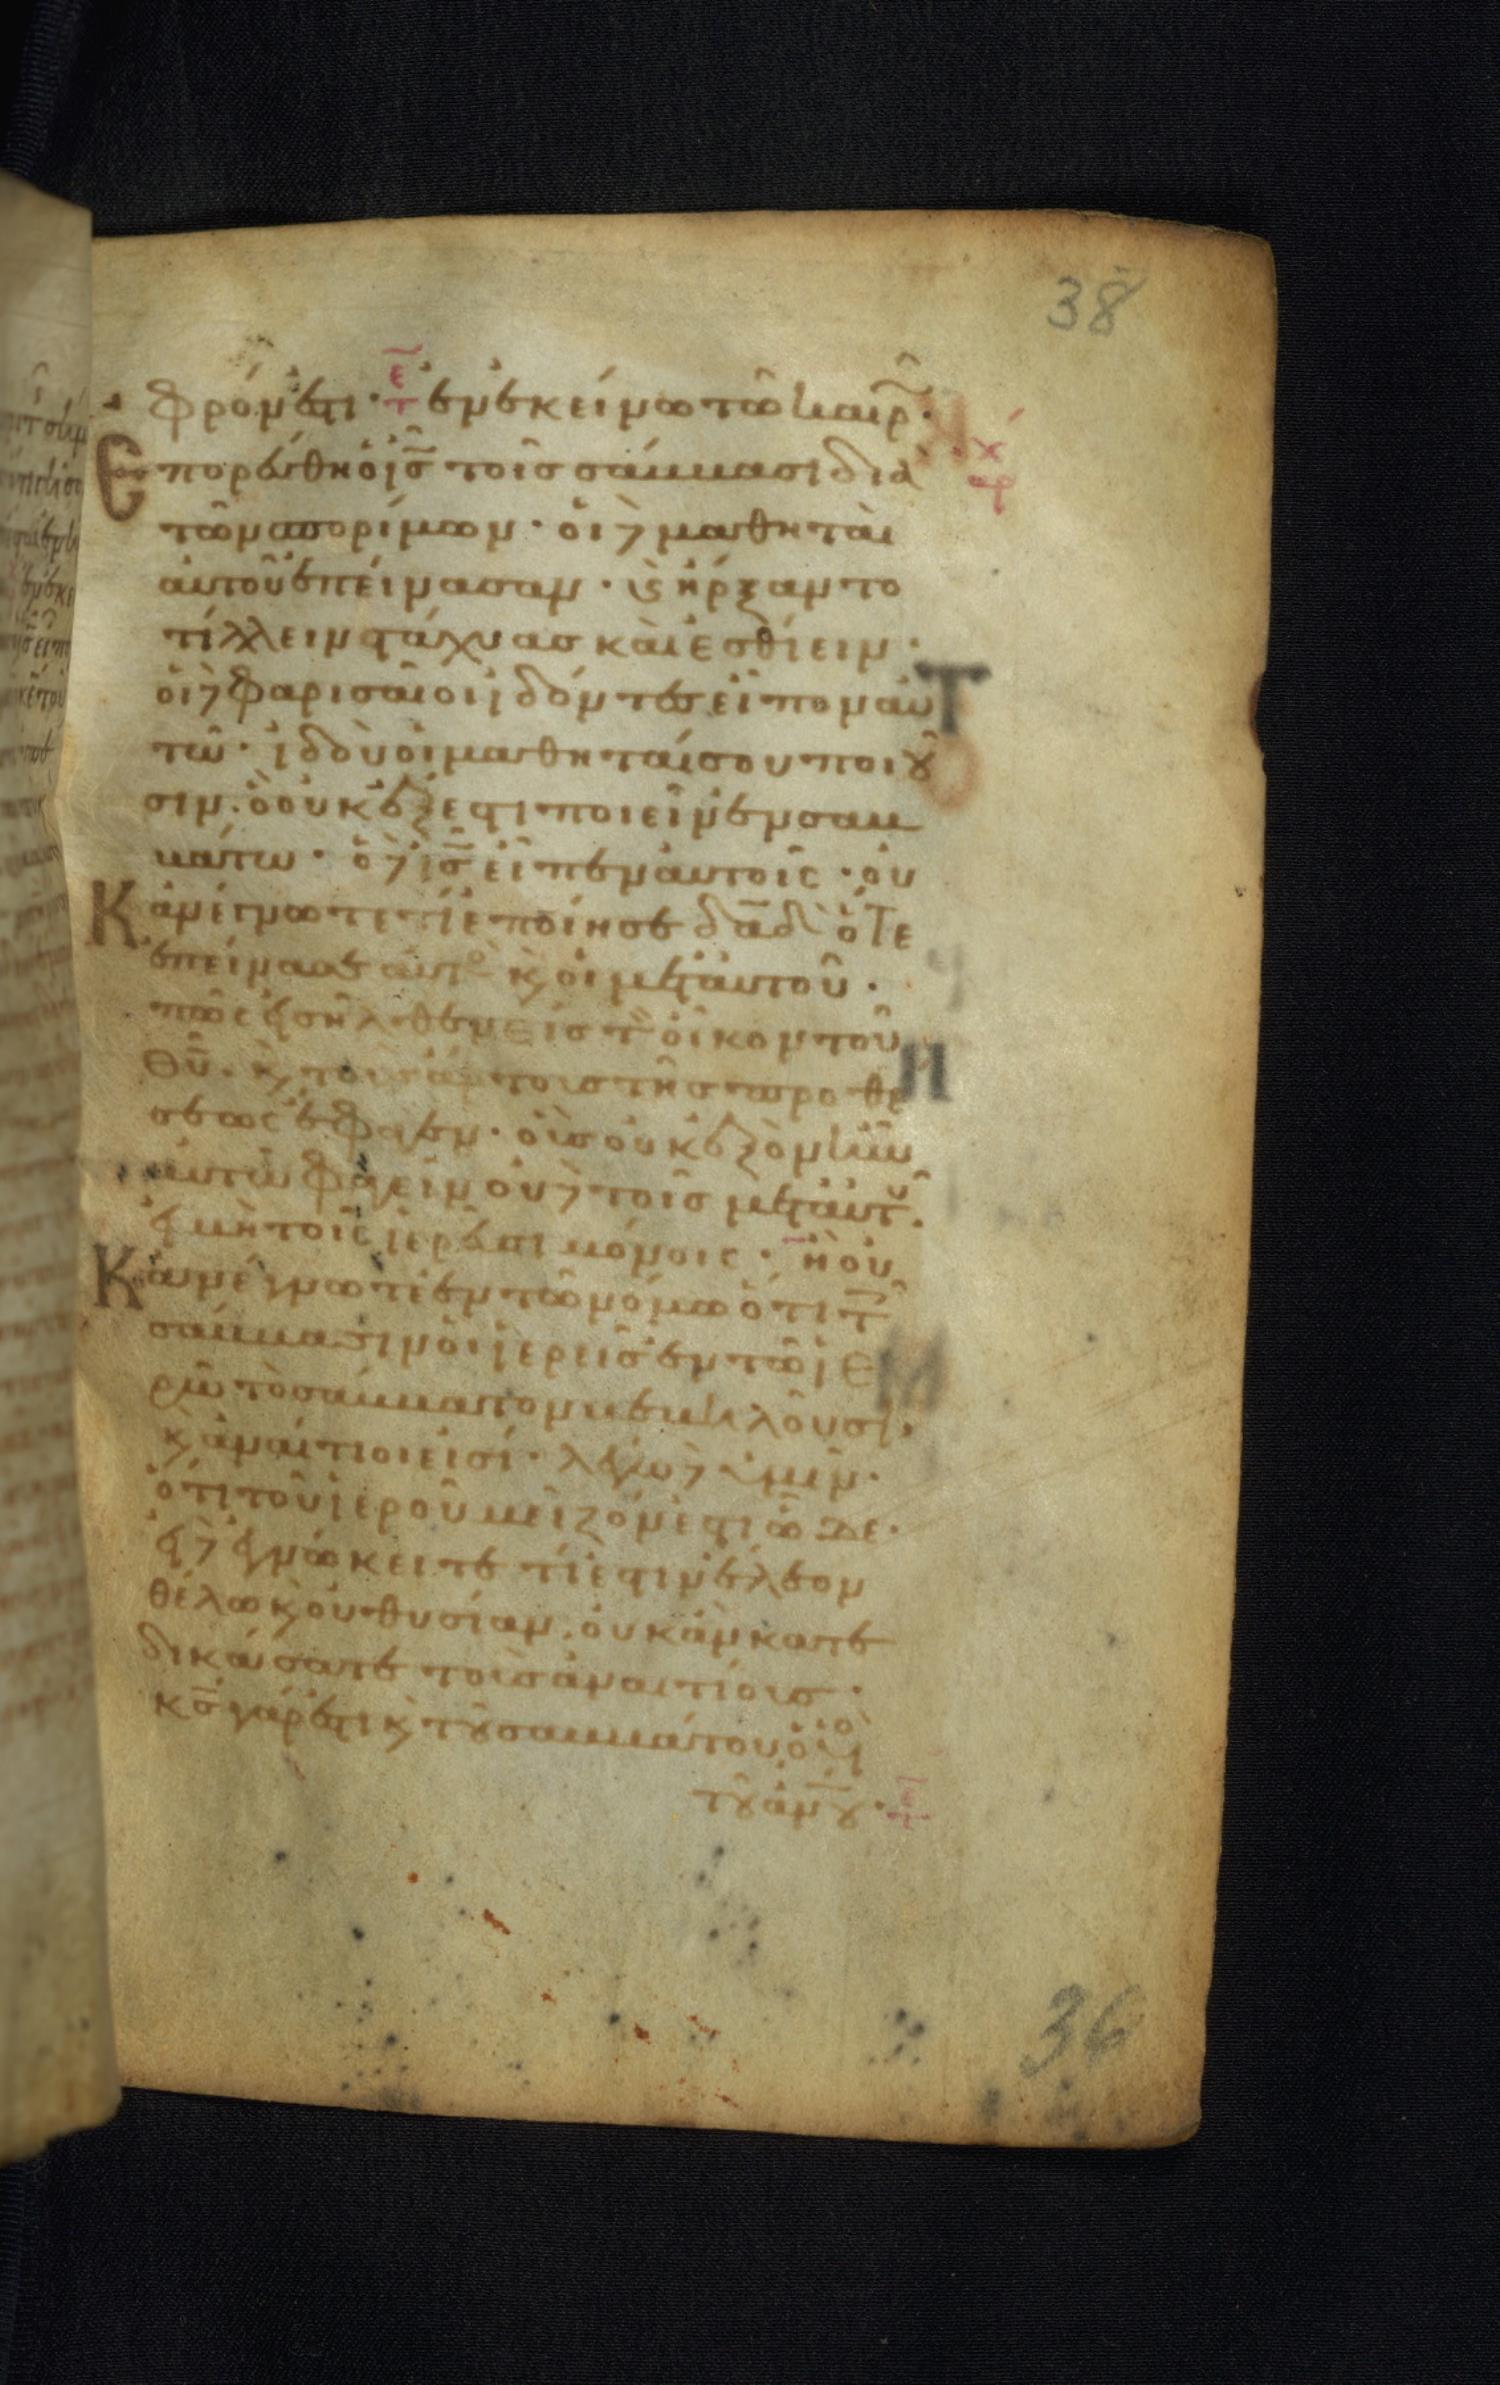 38
φρόν ἐστι· ε̄τ ἐν ἐκείνω τῶ καιρ·
Ἐπορεύθη ὁ ις̄ τοῖς σάββασι διὰ
τῶν σπορίμων· οἱ δὲ μαθηταὶ
αὐτοῦ ἐπείνασαν· κ ἤρξαντο
τίλλειν στάχυας καὶ ἐσθίειν·
οἱ δὲ φαρισαῖοι ἰδόντες εἶπον αὐ
τῶ· ἰδοὺ οἱ μαθηταί σου ποιοῦ
σιν· ὃ οὐκ ἔξεστι ποιεῖν ἐν σαβ
βάτω· ὁ δὲ ις̄ εἶπεν αὐτοῖς· οὐ
Κ ἀνέγνωτε τί ἐποίησε δᾱδ ὅτε
ἐπείνασεν αὐτὸς κ οἱ μετ αὐτοῦ·
πῶς εἰσῆλθεν εἰς τὸν οἶκον τοῦ
θῡ· κ τοὺς ἄρτους τῆς προθέ
σεως ἔφαγεν· οἷς οὐκ ἐξὸν ἦν
αὐτῶ φαγεῖν οὐδὲ τοῖς μετ αὐτοῦ·
εἰ μὴ τοῖς ἱερεῦσι μόνοις· ἢ οὐ
Κ ἀνέγνωτε ἐν τῶ νόμω ὅτι τ
σάββασιν οἱ ἱερεῖς ἐν τῶ ἱε
ρῶ τὸ σάββατον βεβηλοῦσι·
κ ἀναίτιοι εἰσί· λέγω δὲ ὑμῖν·
ὅτι τοῦ ἱεροῦ μεῖζόν ἐστι ὧδε·
εἰ δὲ ἐγνώκειτε τί ἐστιν ἔλεον
θέλω κ οὐ θυσίαν, οὐκ ἂν κατε
δικάσατε τοὺς ἀναιτίους·
κς̄ γάρ ἐστι κ τοῦ σαββάτου ὁ υἱὸ
τοῦ ἀν̄ου· ε̄τ
36